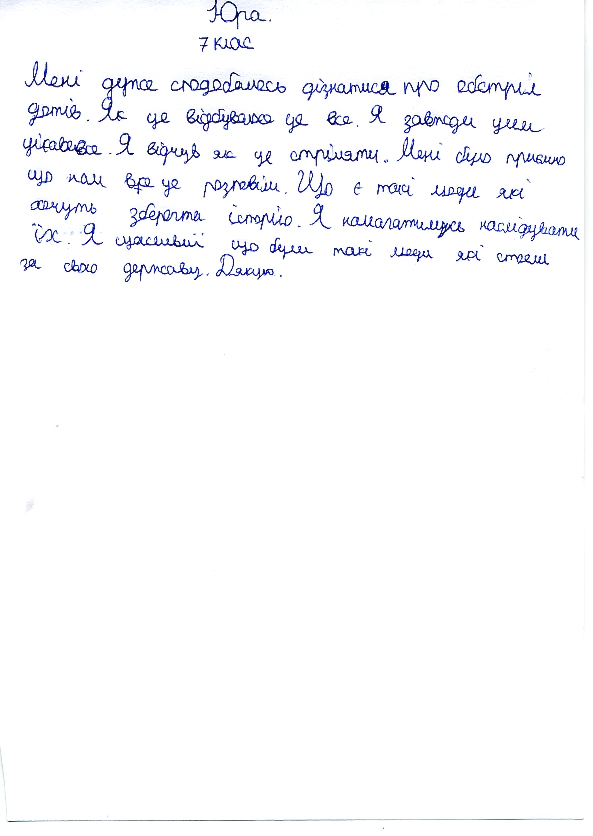 Юра.
7 клас
Мені дуже сподобалось дізнатися про обстріл
дотів. Як це відбувалося це все. Я завжди цим
цікавився. Я відчув як це стріляти. Мені було приємно
що нам все це розповіли. Що є такі люди які
хочуть зберегти історію. Я намагатимусь наслідувати
їх. Я щасливий що були такі люди які стояли
за свою державу. Дякую.